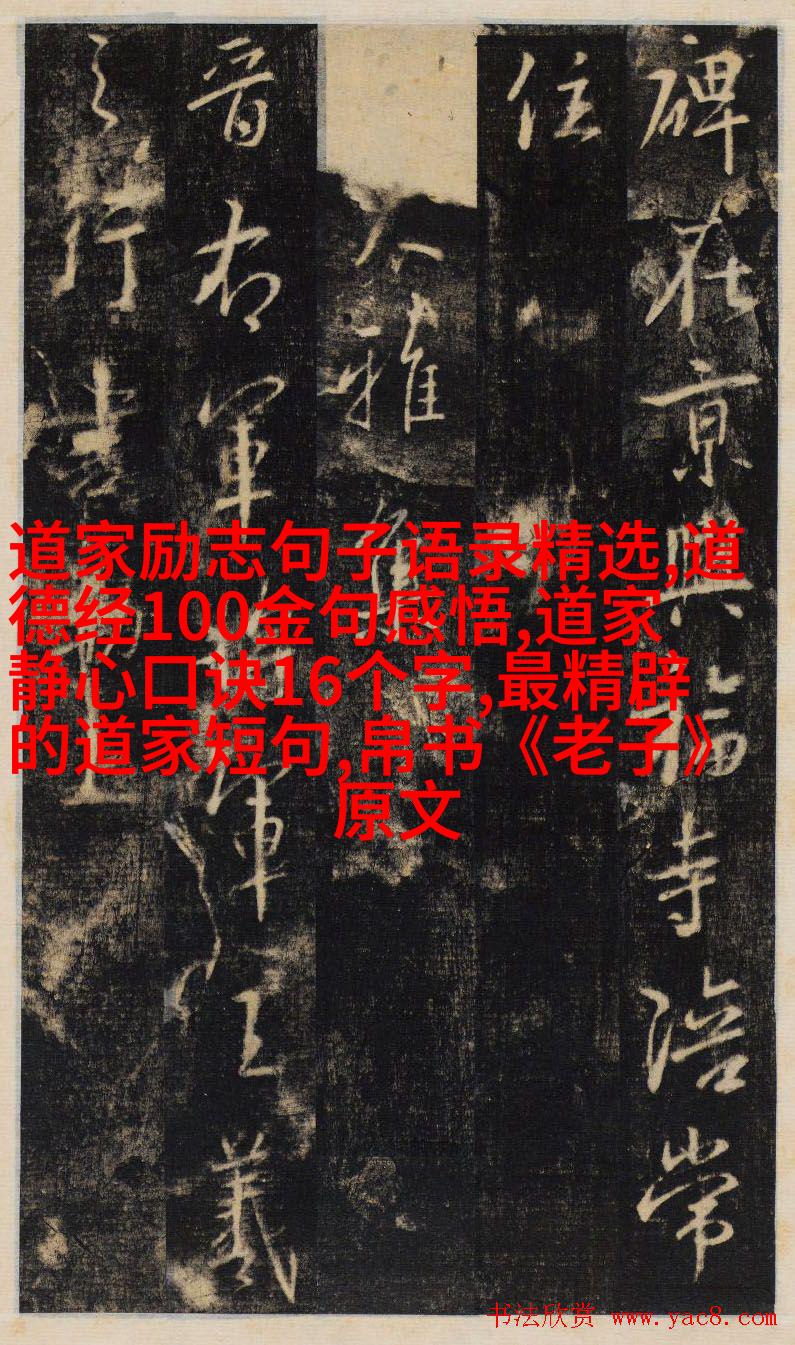 碑在京興福寺陪常
住
大雅集
晉右軍將軍王羲
之行書勒上
道家励志句子语录精选,道
德经100金句感悟,道家
静心口诀16个字,最精辟
的道家短句,帛书《老子》
原文
书法欣赏 www.yac8.com